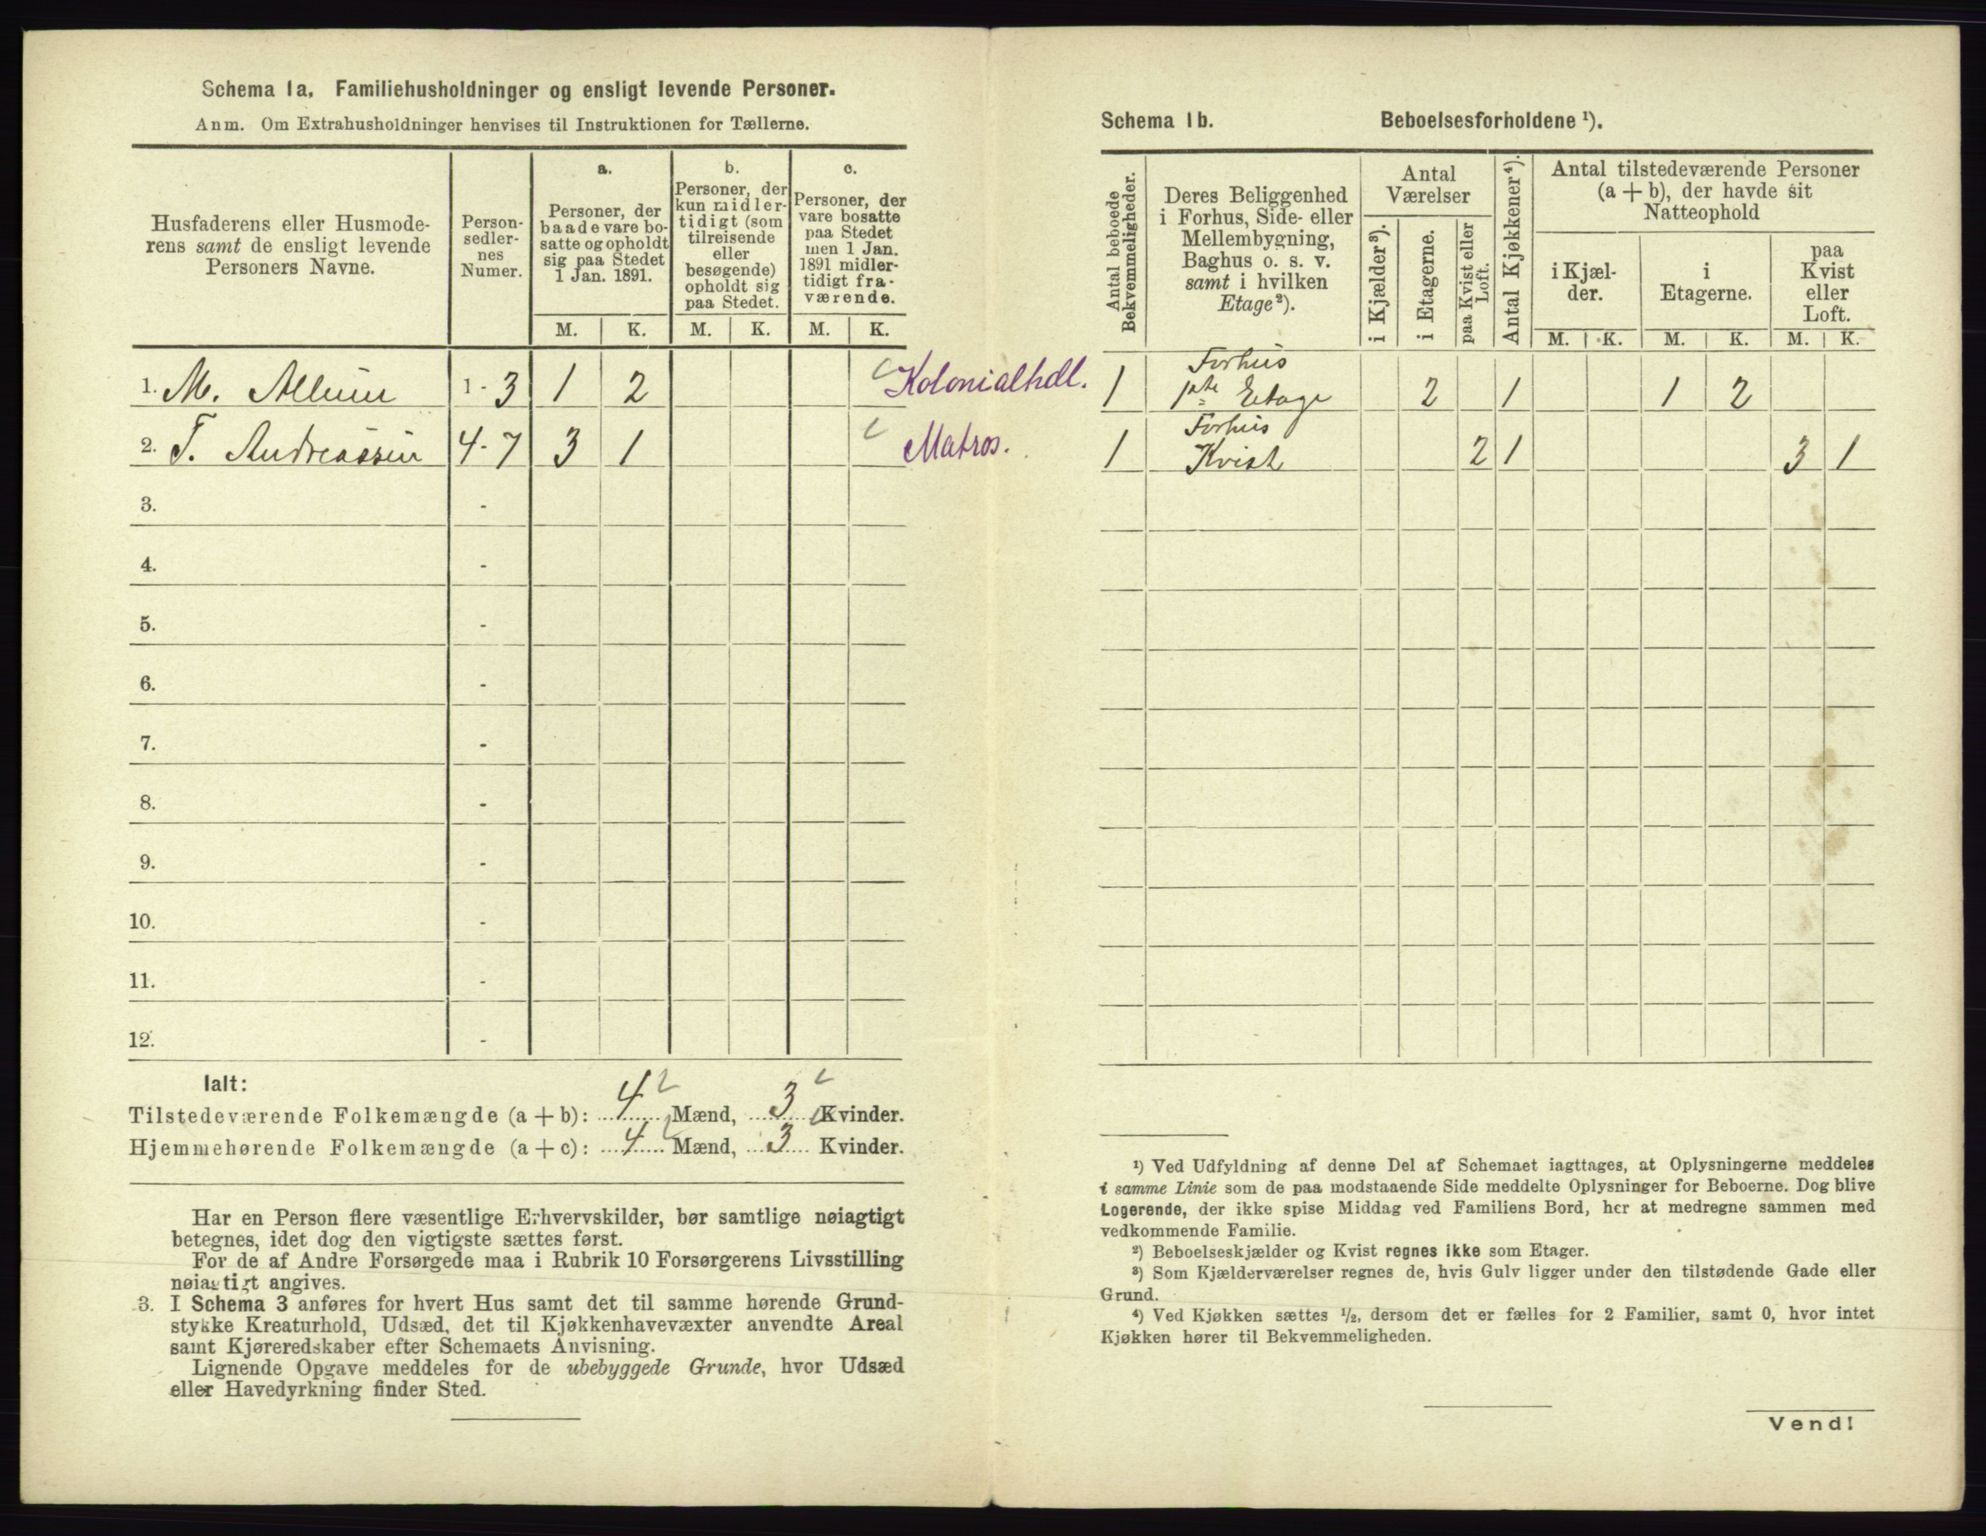 Schema 1a. Familiehusholdninger og ensligt levende Personer.
Anm. Om Extrahusholdninger henvises til Instruktionen for Tællerne.
Husfaderens eller Husmode-
rens samt de ensligt levende
Personers Navne.
Person-
sedler-
nes
Numer.
a.
Personer, der
baade vare bo-
satte og opholdt
sig paa Stedet
1 Jan. 1891.
b.
Personer, der
kun midler-
tidigt (som
tilreisende
eller
besøgende)
opholdt sig
paa Stedet.
c.
Personer, der
vare bosatte
paa Stedet
men 1 Jan.
1891 midler-
tidigt fra-
værende.
M. K. M. K. M. K.
1. M. Allum 1 - 3 1 2 Kolonialhdl.
2. T. Andreassen 4 - 7 3 1 Matros.
3. -
4. -
5. -
6. -
7. -
8. -
9. -
10. -
11. -
12. -
Ialt:
Tilstedeværende Folkemængde (a + b): 4 Mænd, 3 Kvinder.
Hjemmehørende Folkemængde (a + c): 4 Mænd, 3 Kvinder.
Har en Person flere væsentlige Erhvervskilder, bør samtlige nøiagtigt
betegnes, idet dog den vigtigste sættes først.
For de af Andre Forsørgede maa i Rubrik 10 Forsørgerens Livsstilling
nøiagtigt angives.
3. I Schema 3 anføres for hvert Hus samt det til samme hørende Grund-
stykke Kreaturhold, Udsæd, det til Kjøkkenhavevæxter anvendte Areal
samt Kjøreredskaber efter Schemaets Anvisning.
Lignende Opgave meddeles for de ubebyggede Grunde, hvor Udsæd
eller Havedyrkning finder Sted.
Schema 1b. Beboelsesforholdene ¹).
Antal beboede
Bekvemmeligheder.
Deres Beliggenhed
i Forhus, Side- eller
Mellembygning,
Baghus o. s. v.
samt i hvilken
Etage²).
Antal
Værelser
i Kjælder³).
i Etagerne.
paa Kvist eller
Loft.
Antal Kjøkkener⁴).
Antal tilstedeværende Personer
(a + b), der havde sit
Natteophold
i Kjæl-
der.
i
Etagerne.
paa
Kvist
eller
Loft.
M. K. M. K. M. K.
Forhus
1 1ste Etage 2 1 1 2
Forhus
1 Kvist 2 1 3 1
¹) Ved Udfyldning af denne Del af Schemaet iagttages, at Oplysningerne meddeles
i samme Linie som de paa modstaaende Side meddelte Oplysninger for Beboerne. Dog blive
Logerende, der ikke spise Middag ved Familiens Bord, her at medregne sammen med
vedkommende Familie.
²) Beboelseskjælder og Kvist regnes ikke som Etager.
³) Som Kjælderværelser regnes de, hvis Gulv ligger under den tilstødende Gade eller
Grund.
⁴) Ved Kjøkken sættes ½, dersom det er fælles for 2 Familier, samt 0, hvor intet
Kjøkken hører til Bekvemmeligheden.
Vend!